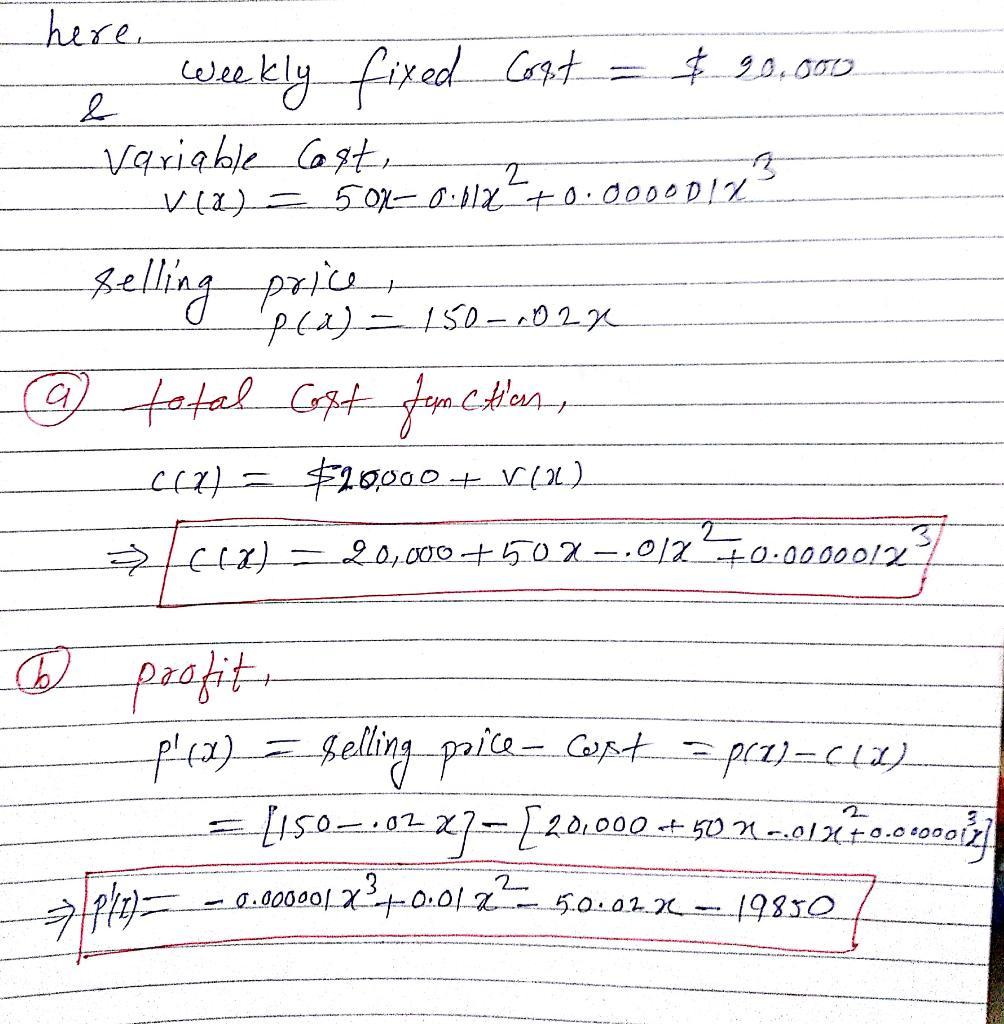 here,
weekly fixed Cost = $ 20,000
&
variable Cost,
v(x) = 50x - 0.01x² + 0.000001x³
selling price,
p(x) = 150 - .02x
(a) total Cost function,
c(x) = $20,000 + v(x)
⇒ c(x) = 20,000 + 50x - .01x² + 0.000001x³
(b) profit,
p'(x) = selling price - Cost = p(x) - c(x)
= [150 - .02x] - [20,000 + 50x - .01x² + 0.000001x³]
⇒ p'(x) = - 0.000001x³ + 0.01x² - 50.02x - 19850